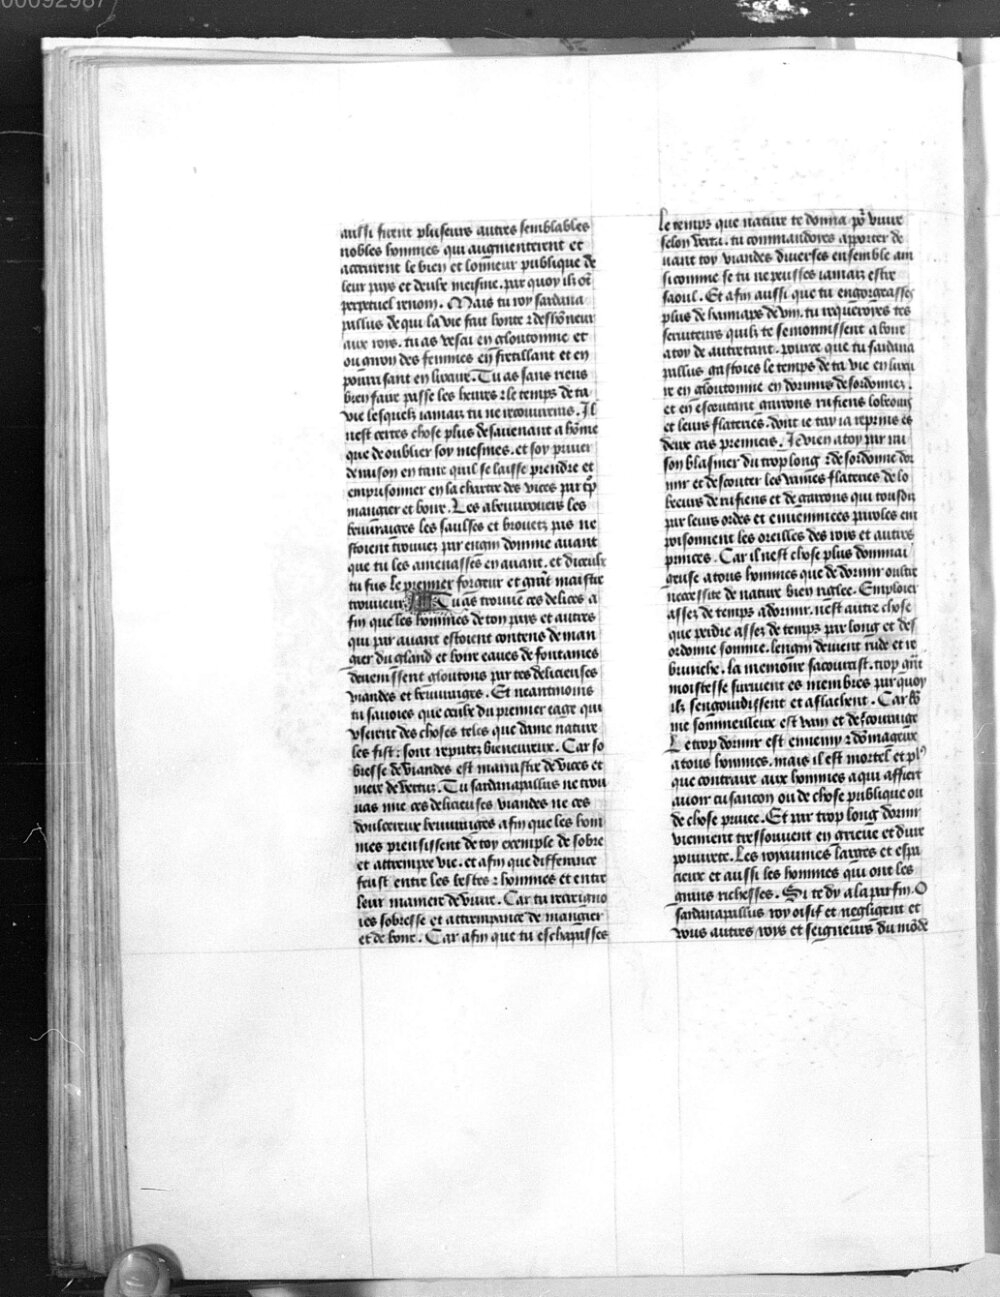 00092987
aussi furent pluseurs autres semblables
nobles hommes qui augmenterent et
accrurent le bien et lonneur publique de
leur pays et deulx meisme. par quoy ilz ōt
perpetuel renom. Mais tu roy sardana
pallus de qui la vie fait honte ⁊ deshōneur
aux roys. tu as vescu en gloutonnie et
ou giron des femmes en fretillant et en
pourrissant en luxure. Tu as sans riens
bien faire passe les heures ⁊ le temps de ta
vie lesquelz iamais tu ne recouureras. Il
nest certes chose plus desauenant a hōme
que de oublier soy mesmes. et soy priuer
de raison en tant quil se laisse prendre et
emprisonner en la chartre des vices par tp̄
mangier et boire. Les abeuurouers les
beuuraiges les saulses et brouetz pas ne
stoient trouuez par engin domme auant
que tu les amenasses en auant. et diceulx
tu fus le premier forgeur et grāt maistre
trouueur. Tu as trouue ces delices a
fin que les hommes de ton pays et autres
qui par auant estoient contens de man
gier du gland et boire eaues de fontaines
deuenissent gloutons par tes delicieuses
viandes et beuuraiges. Et neantmoins
tu sauoies que ceulx du premier eage qui
vserent des choses telles que dame nature
les fist: sont reputez bieneureux. Car so
bresse de viandes est marrastre de vices et
mere de vertus. Tu sardanapallus ne trou
uas mie ces delicieuses viandes ne ces
doulcereux beuuraiges afin que les hom
mes prensissent de toy exemple de sobre
et attrempee vie. et afin que difference
feust entre les bestes ⁊ hommes et entre
leur maniere de viure. Car tu
sobresse et attrempance de mangier
et de boire. Car afin que tu eschapasses
le temps que nature te donna po᷑ viure
selon verta. tu commandoies apporter de
uant toy viandes diuerses ensemble ain
si comme se tu ne peusses iamais estre
saoul. Et afin aussi que tu engorgeasses
plus de hanaps de vin. tu requeroies tes
seruiteurs quilz te semonnissent a boire
a toy de autretant. pource que tu sardana
pallus gastoies le temps de ta vie en luxu
re en gloutonnie en dormirs desordonnez.
et en escoutant garcons rufiens lobeours
et leurs flateries. dont ie tay ia reprins es
deux cas premiers. Je vien a toy par rai
son blasmer du trop long ⁊ desordonne dor
mir et descouter les vaines flateries de lo
beeurs de rufiens et de garcons qui tousdis
par leurs ordes et enuenimees paroles em
poisonnent les oreilles des roys et autres
princes. Car il nest chose plus dommai
geuse a tous hommes que de dormir oultre
necessite de nature bien riglee. Emploier
assez de temps a dormir. nest autre chose
que perdre assez de temps par long et des
ordonne somme. lengin deuient rude et re
brunche. la memoire sacourcist. trop grāt
moistesse suruient es membres par quoy
ilz sengourdissent et aflachent. Car hō
me sommeilleux est vain et descouraige
Le trop dormir est ennemy ⁊ dōmageux
a tous hommes. mais il est mortel et plꝰ
que contraire aux hommes a qui affiert
auoir cusancon ou de chose publique ou
de chose priuee. Et par trop long dormir
viennent tressouuent en grieue et dure
pouurete. Les royaumes larges et espa
cieux et aussi les hommes qui ont les
grans richesses. Si te dy a la par fin. O
sardanapallus roy oisif et negligent et
vous autres roys et seigneurs du mōde